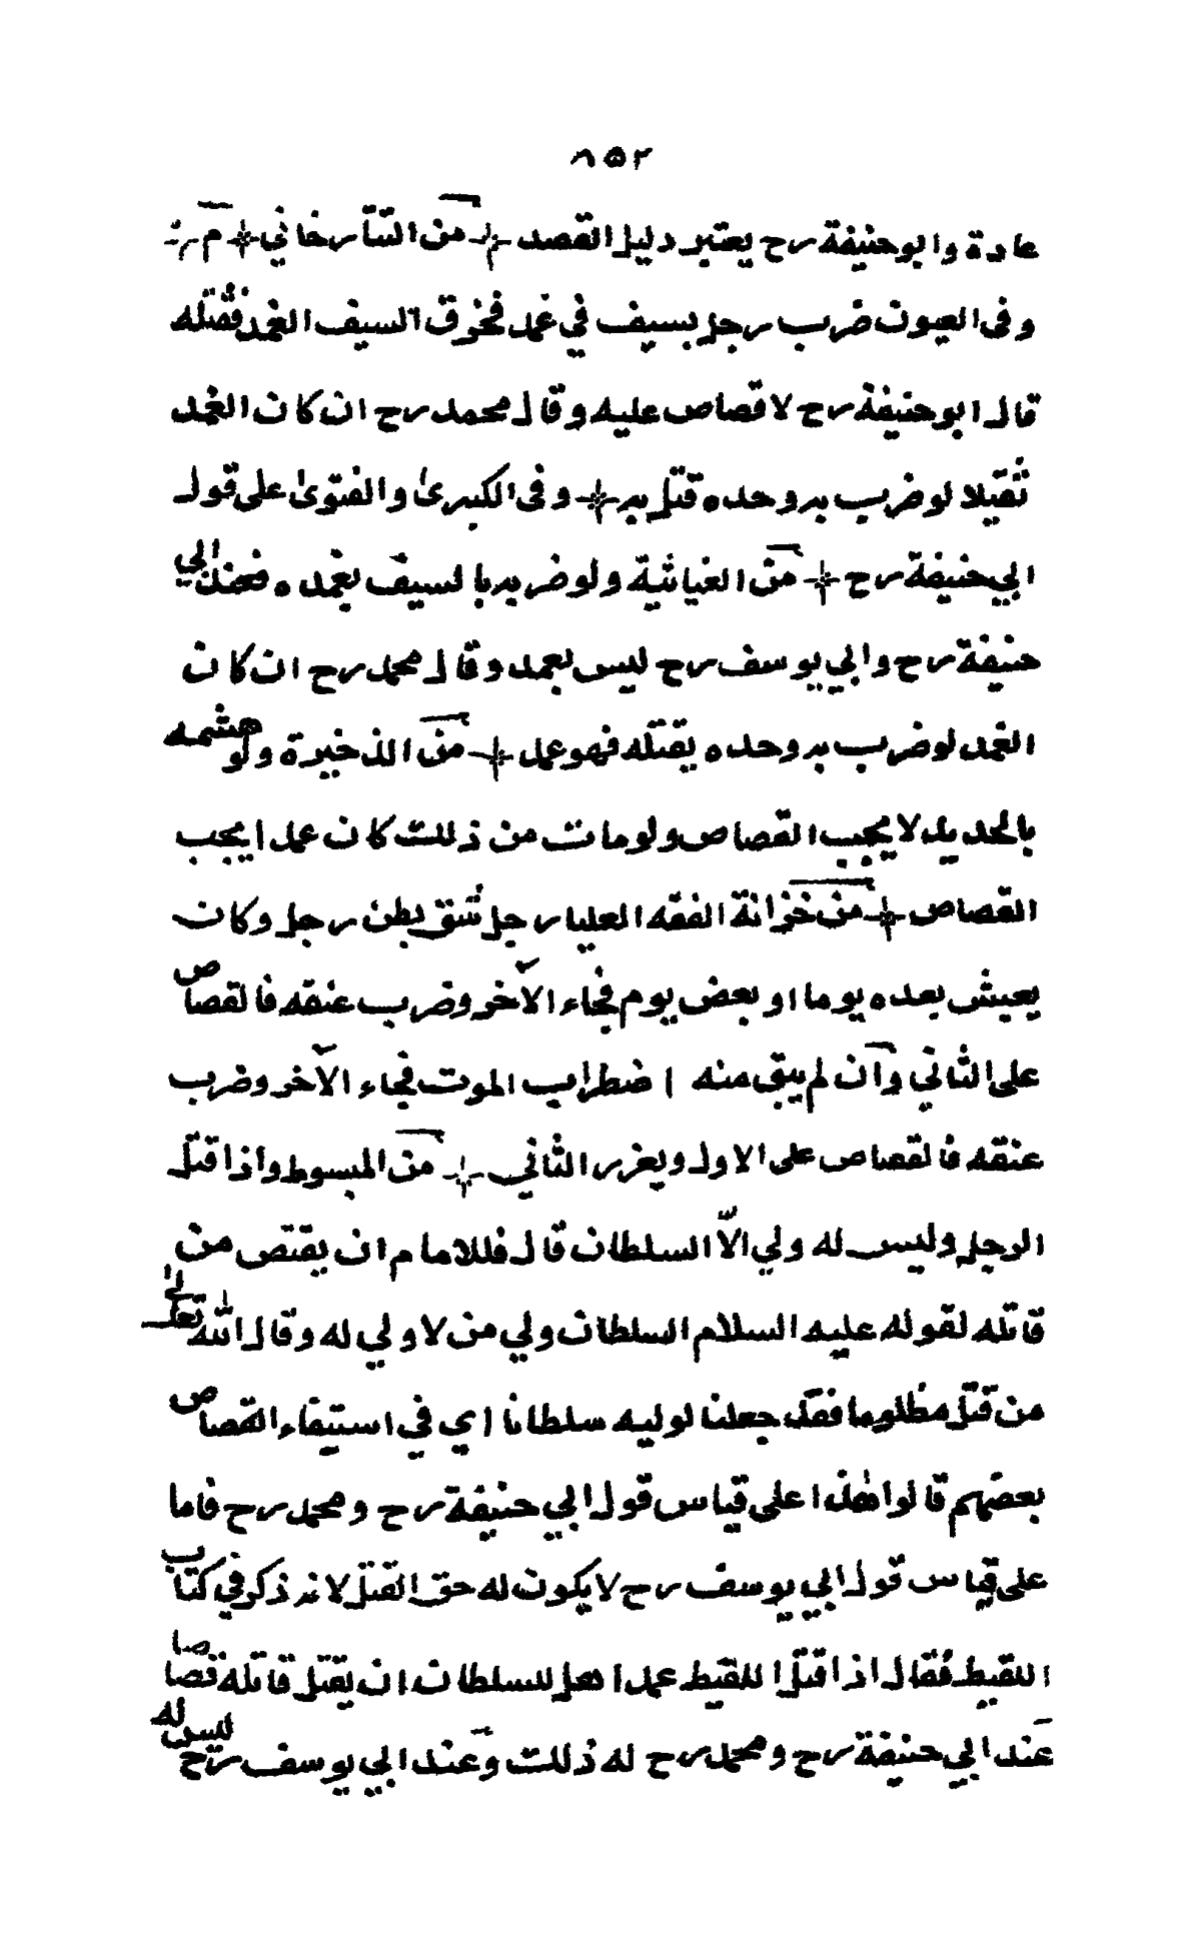 ٨٥٢
عادة وابو حنيفة رح يعتبر دليل القصد ۞ من التتارخاني ۞ م
وفى العيون ضرب رجل بسيف في غمد فخرق السيف الغمد فقتله
قال ابو حنيفة رح لا قصاص عليه وقال محمد رح ان كان الغمد
ثقيلا لو ضرب به وحده قتل به ۞ وفى الكبرى والفتوى على قول
ابي حنيفة رح ۞ من الغياثية ولو ضربه بالسيف بغمده فعند ابي
حنيفة رح وابي يوسف رح ليس بعمد وقال محمد رح ان كان
الغمد لو ضرب به وحده يقتله فهو عمل ۞ من الذخيرة ولو هشمه
بالحديد لا يجب القصاص ولو مات من ذلك كان عمدا يجب
القصاص ۞ من خزانة الفقه العليا رجل شق بطن رجل وكان
يعيش بعده يوما او بعض يوم فجاء الآخر وضرب عنقه فالقصاص
على الثاني وان لم يبق منه اضطراب الموت فجاء الآخر وضرب
عنقه فالقصاص على الاول ويعزر الثاني ۞ من المبسوط واذا قتل
الرجل وليس له ولي الّا السلطان قال فللامام ان يقتص من
قاتله لقوله عليه السلام السلطان ولي من لا ولي له وقال الله تعالى
من قتل مظلوما فقد جعلنا لوليه سلطانا اي في استيفاء القصاص
بعضهم قالوا هذا على قياس قول ابي حنيفة رح ومحمد رح فاما
على قياس قول ابي يوسف رح لا يكون له حق القتل لانه ذكر في كتاب
اللقيط فقال اذا قتل اللقيط عمدا هل للسلطان ان يقتل قاتله قصاصا
عند ابي حنيفة رح ومحمد رح له ذلك وعند ابي يوسف رح ليس له